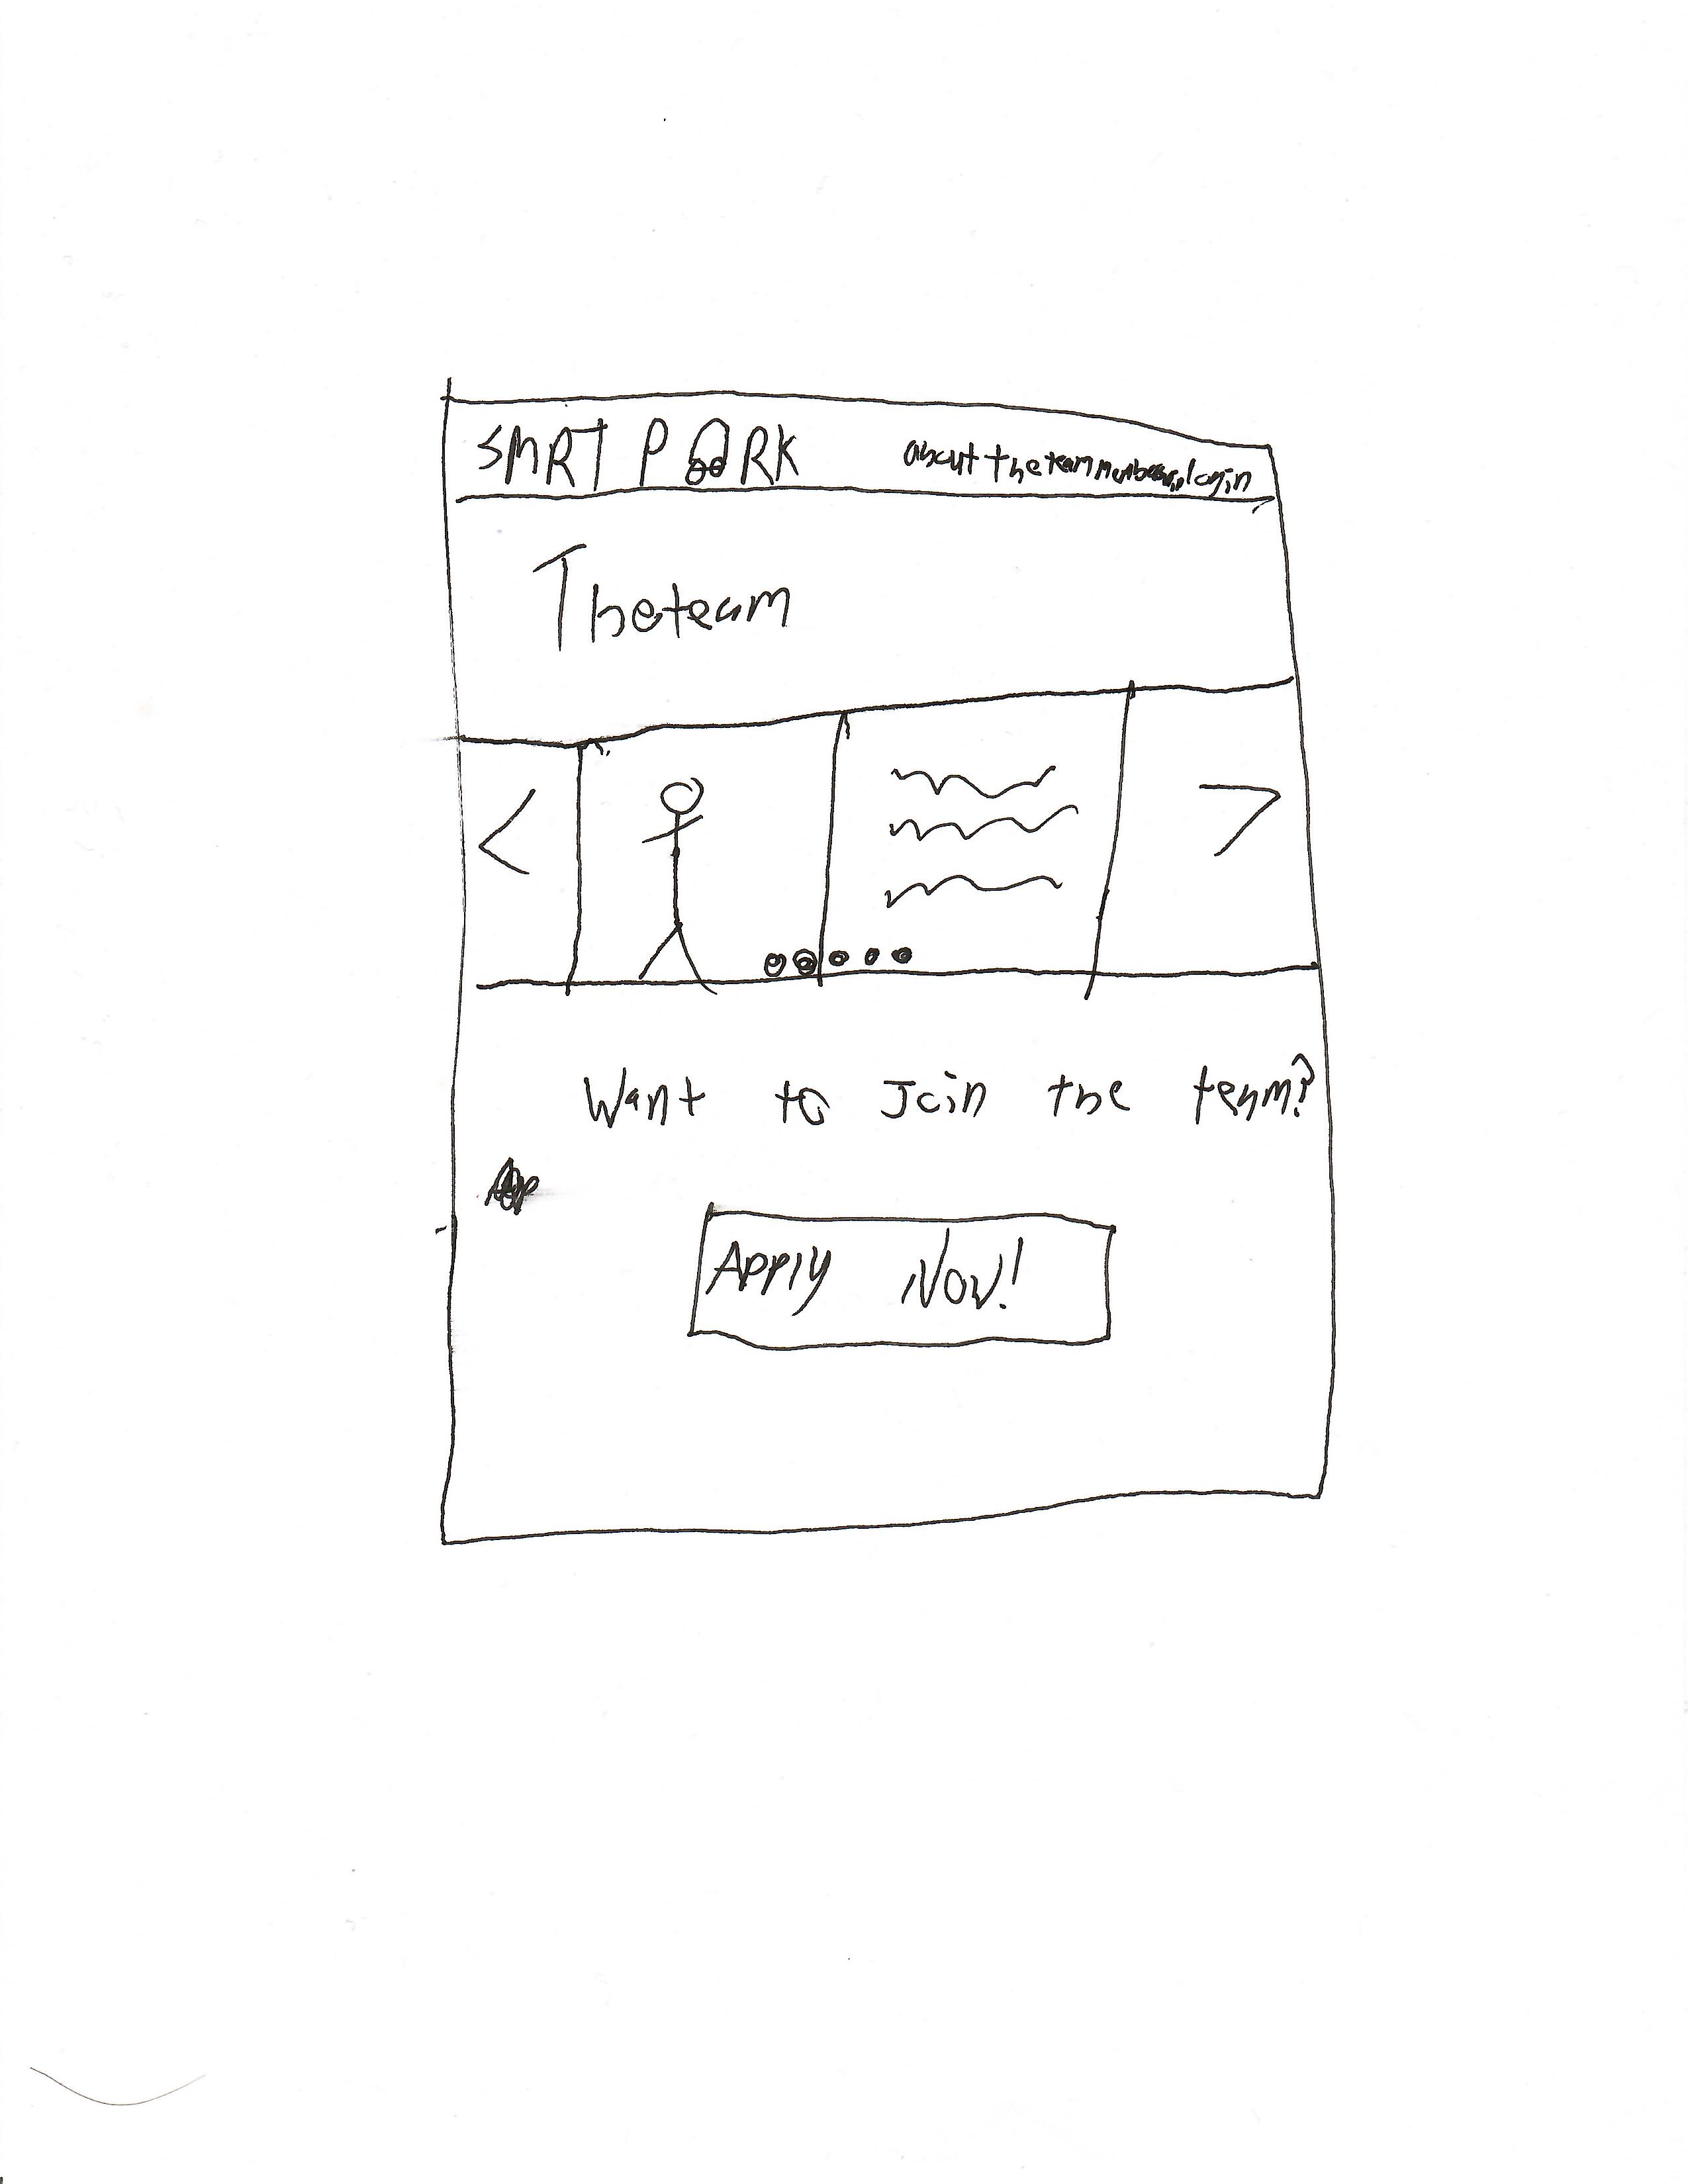 SMRT PARK about the team members login
The team
< >
Want to Join the team?
Apply Now!